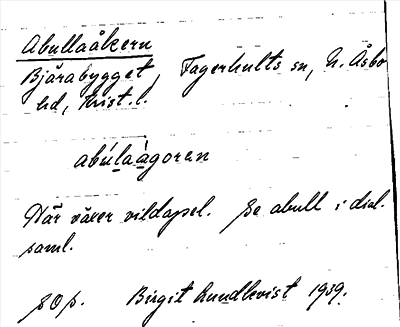 Abullaåkern
Bjärabygget, Fagerhults sn, N. Åsbo
hd, Krist. l.
abúlaàgoren
Där växer vildapel. Se abull i dial.
saml.
80 p. Birgit Lundkvist 1939.